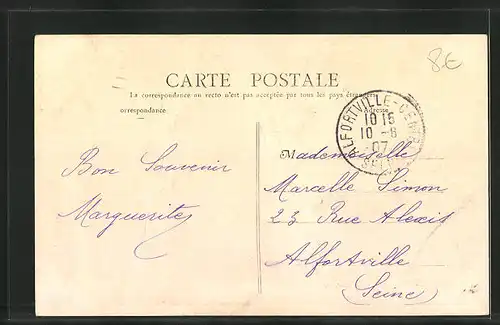 8€
CARTE POSTALE
La correspondance au recto n'est pas acceptée par tous les pays étrangers
orrespondance
Adresse
ALFORTVILLE-
10 15
10 -8
07
Bon Souvenir
Marguerite
Mademoiselle
Marcelle Simon
23 Rue Alexis
Alfortville
(Seine)